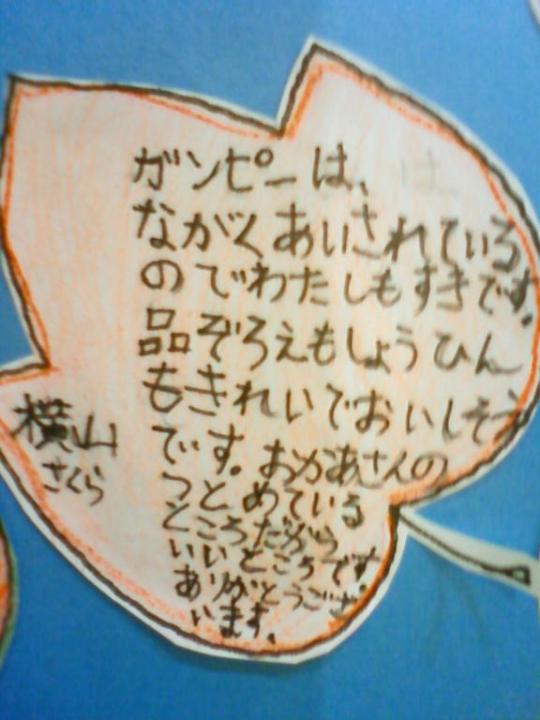 ガンピーは、
ながくあいされている
のでわたしもすきです。
品ぞろえもしょうひん
もきれいでおいしそう
です。おかあさんの
つとめている
ところだから
いいところです
ありがとうござ
います。
横山
さくら